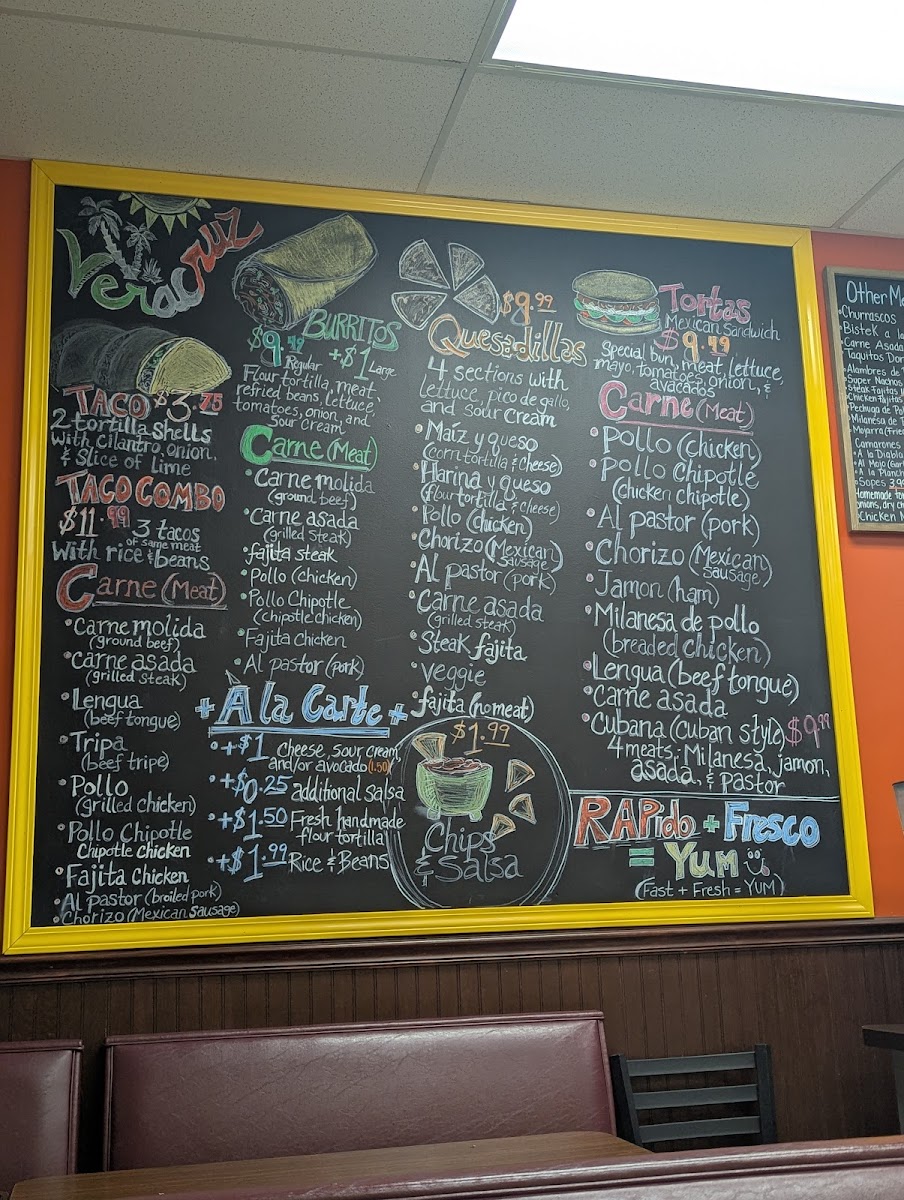 Veracruz
TACO $3.75
2 tortilla shells
with cilantro, onion,
& Slice of lime
TACO COMBO
$11.99 3 tacos
of same meat
With rice & beans
Carne (Meat)
• Carne molida
(ground beef)
• Carne asada
(grilled steak)
• Lengua
(beef tongue)
• Tripa
(beef tripe)
• Pollo
(grilled chicken)
• Pollo Chipotle
Chipotle chicken
• Fajita Chicken
• Al pastor (broiled pork)
• Chorizo (Mexican Sausage)
BURRITOS
$9.49 Regular +$1 Large
Flour tortilla, meat,
refried beans, lettuce,
tomatoes, onion, and
sour cream
Carne (Meat)
• Carne molida
(ground beef)
• Carne asada
(grilled steak)
• fajita steak
• Pollo (chicken)
• Pollo Chipotle
(chipotle chicken)
• Fajita chicken
• Al pastor (pork)
+ A la Carte +
• +$1 Cheese, sour cream
and/or avocado (1.50)
• +$0.25 additional salsa
• +$1.50 Fresh handmade
flour tortilla
• +$1.99 Rice & Beans
$9.99
Quesadillas
4 sections with
lettuce, pico de gallo,
and sour cream
• Maíz y queso
(corn tortilla & cheese)
• Harina y queso
(flour tortilla & cheese)
• Pollo (chicken)
• Chorizo (Mexican
sausage)
• Al pastor (pork)
• Carne asada
(grilled steak)
• Steak fajita
• veggie
• fajita (no meat)
$1.99
Chips
& Salsa
Tortas
Mexican Sandwich
$9.49
Special bun, meat, lettuce,
mayo, tomatoes, onion, &
avacados
Carne (Meat)
• Pollo (chicken)
• Pollo Chipotle
(chicken chipotle)
• Al pastor (pork)
• Chorizo (Mexican
sausage)
• Jamon (ham)
• Milanesa de pollo
(breaded chicken)
• Lengua (beef tongue)
• Carne asada
• Cubana (Cuban style) $9.99
4 meats; Milanesa, jamon,
asada, & pastor
RAPido + Fresco
= Yum
(Fast + Fresh = YUM)
Other
• Churrascos
• Bistek a
• Carne Asada
• Taquitos
• Alambres de
• Super Nachos
• Steak Fajitas
• Chicken Fajitas
• Pechuga de
• Milanesa de
• Mojarra
Camarones
• A la Diabla
• Al Mojo
• A la
• Sopes
Homemade
onions,
• Chicken